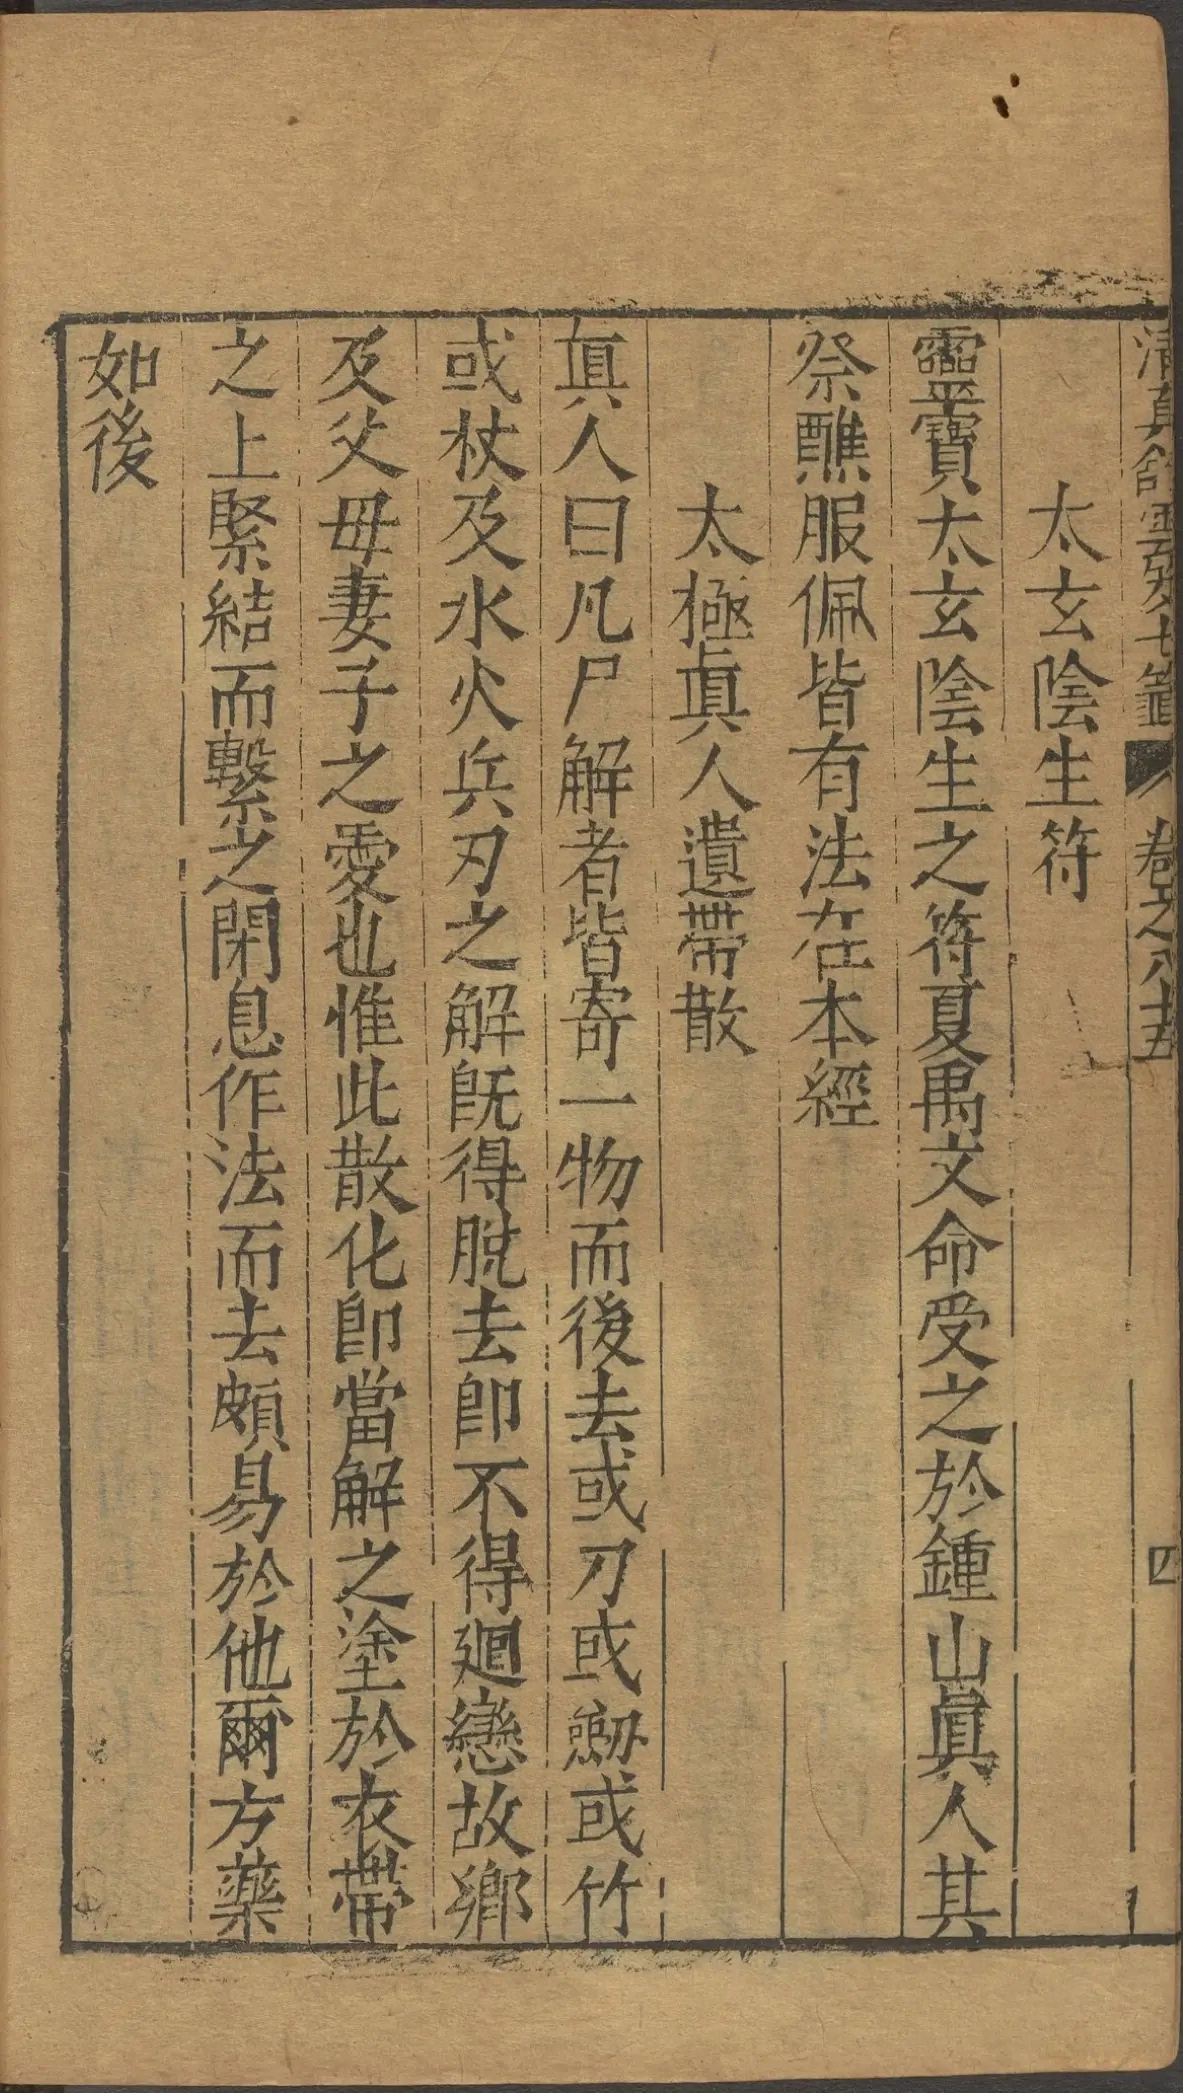 清真館雲笈七籖 卷之八十五 四
太玄陰生符
靈寶太玄陰生之符夏禹文命受之於鍾山眞人其
祭醮服佩皆有法在本經
太極眞人遺帶散
眞人曰凡尸解者皆寄一物而後去或刀或劒或竹
或杖及水火兵刃之解旣得脫去卽不得廻戀故鄉
及父母妻子之愛也惟此散化卽當解之塗於衣帶
之上緊結而繫之閉息作法而去頗易於他爾方藥
如後